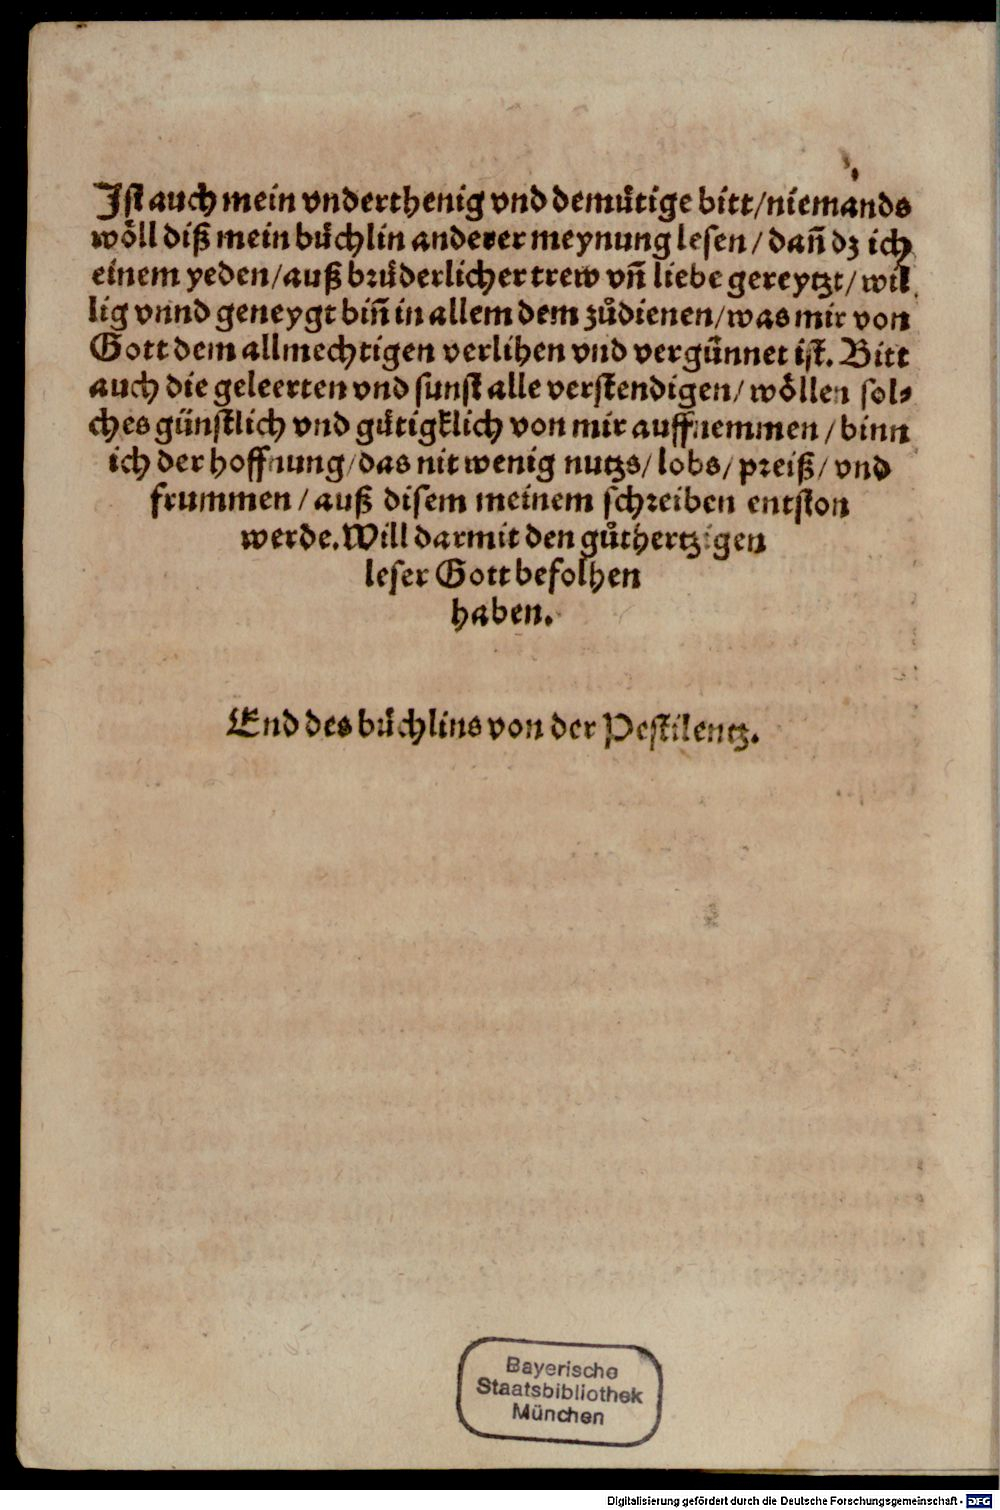 Ist auch mein vnderthenig vnd demuͤtige bitt/niemands
woͤll diß mein buͤchlin anderer meynung lesen/ dañ dz ich
einem yeden/auß bruͤderlicher trew vñ liebe gereytzt/ wil
lig vnnd geneygt biñ in allem dem zuͦdienen/was mir von
Gott dem allmechtigen verlihen vnd verguͤnnet ist. Bitt
auch die geleerten vnd sunst alle verstendigen/ woͤllen sol⸗
ches günstlich vnd guͤtigklich von mir auffnemmen/ binn
ich der hoffnung/das nit wenig nutzs/ lobs/ preiß/ vnd
frummen/ auß disem meinem schreiben entston
werde. Will darmit den guͦthertzigen
leser Gott befolhen
haben.
End des buͤchlins von der Pestilentz.
Bayerische
Staatsbibliothek
München
Digitalisierung gefördert durch die Deutsche Forschungsgemeinschaft - DFG